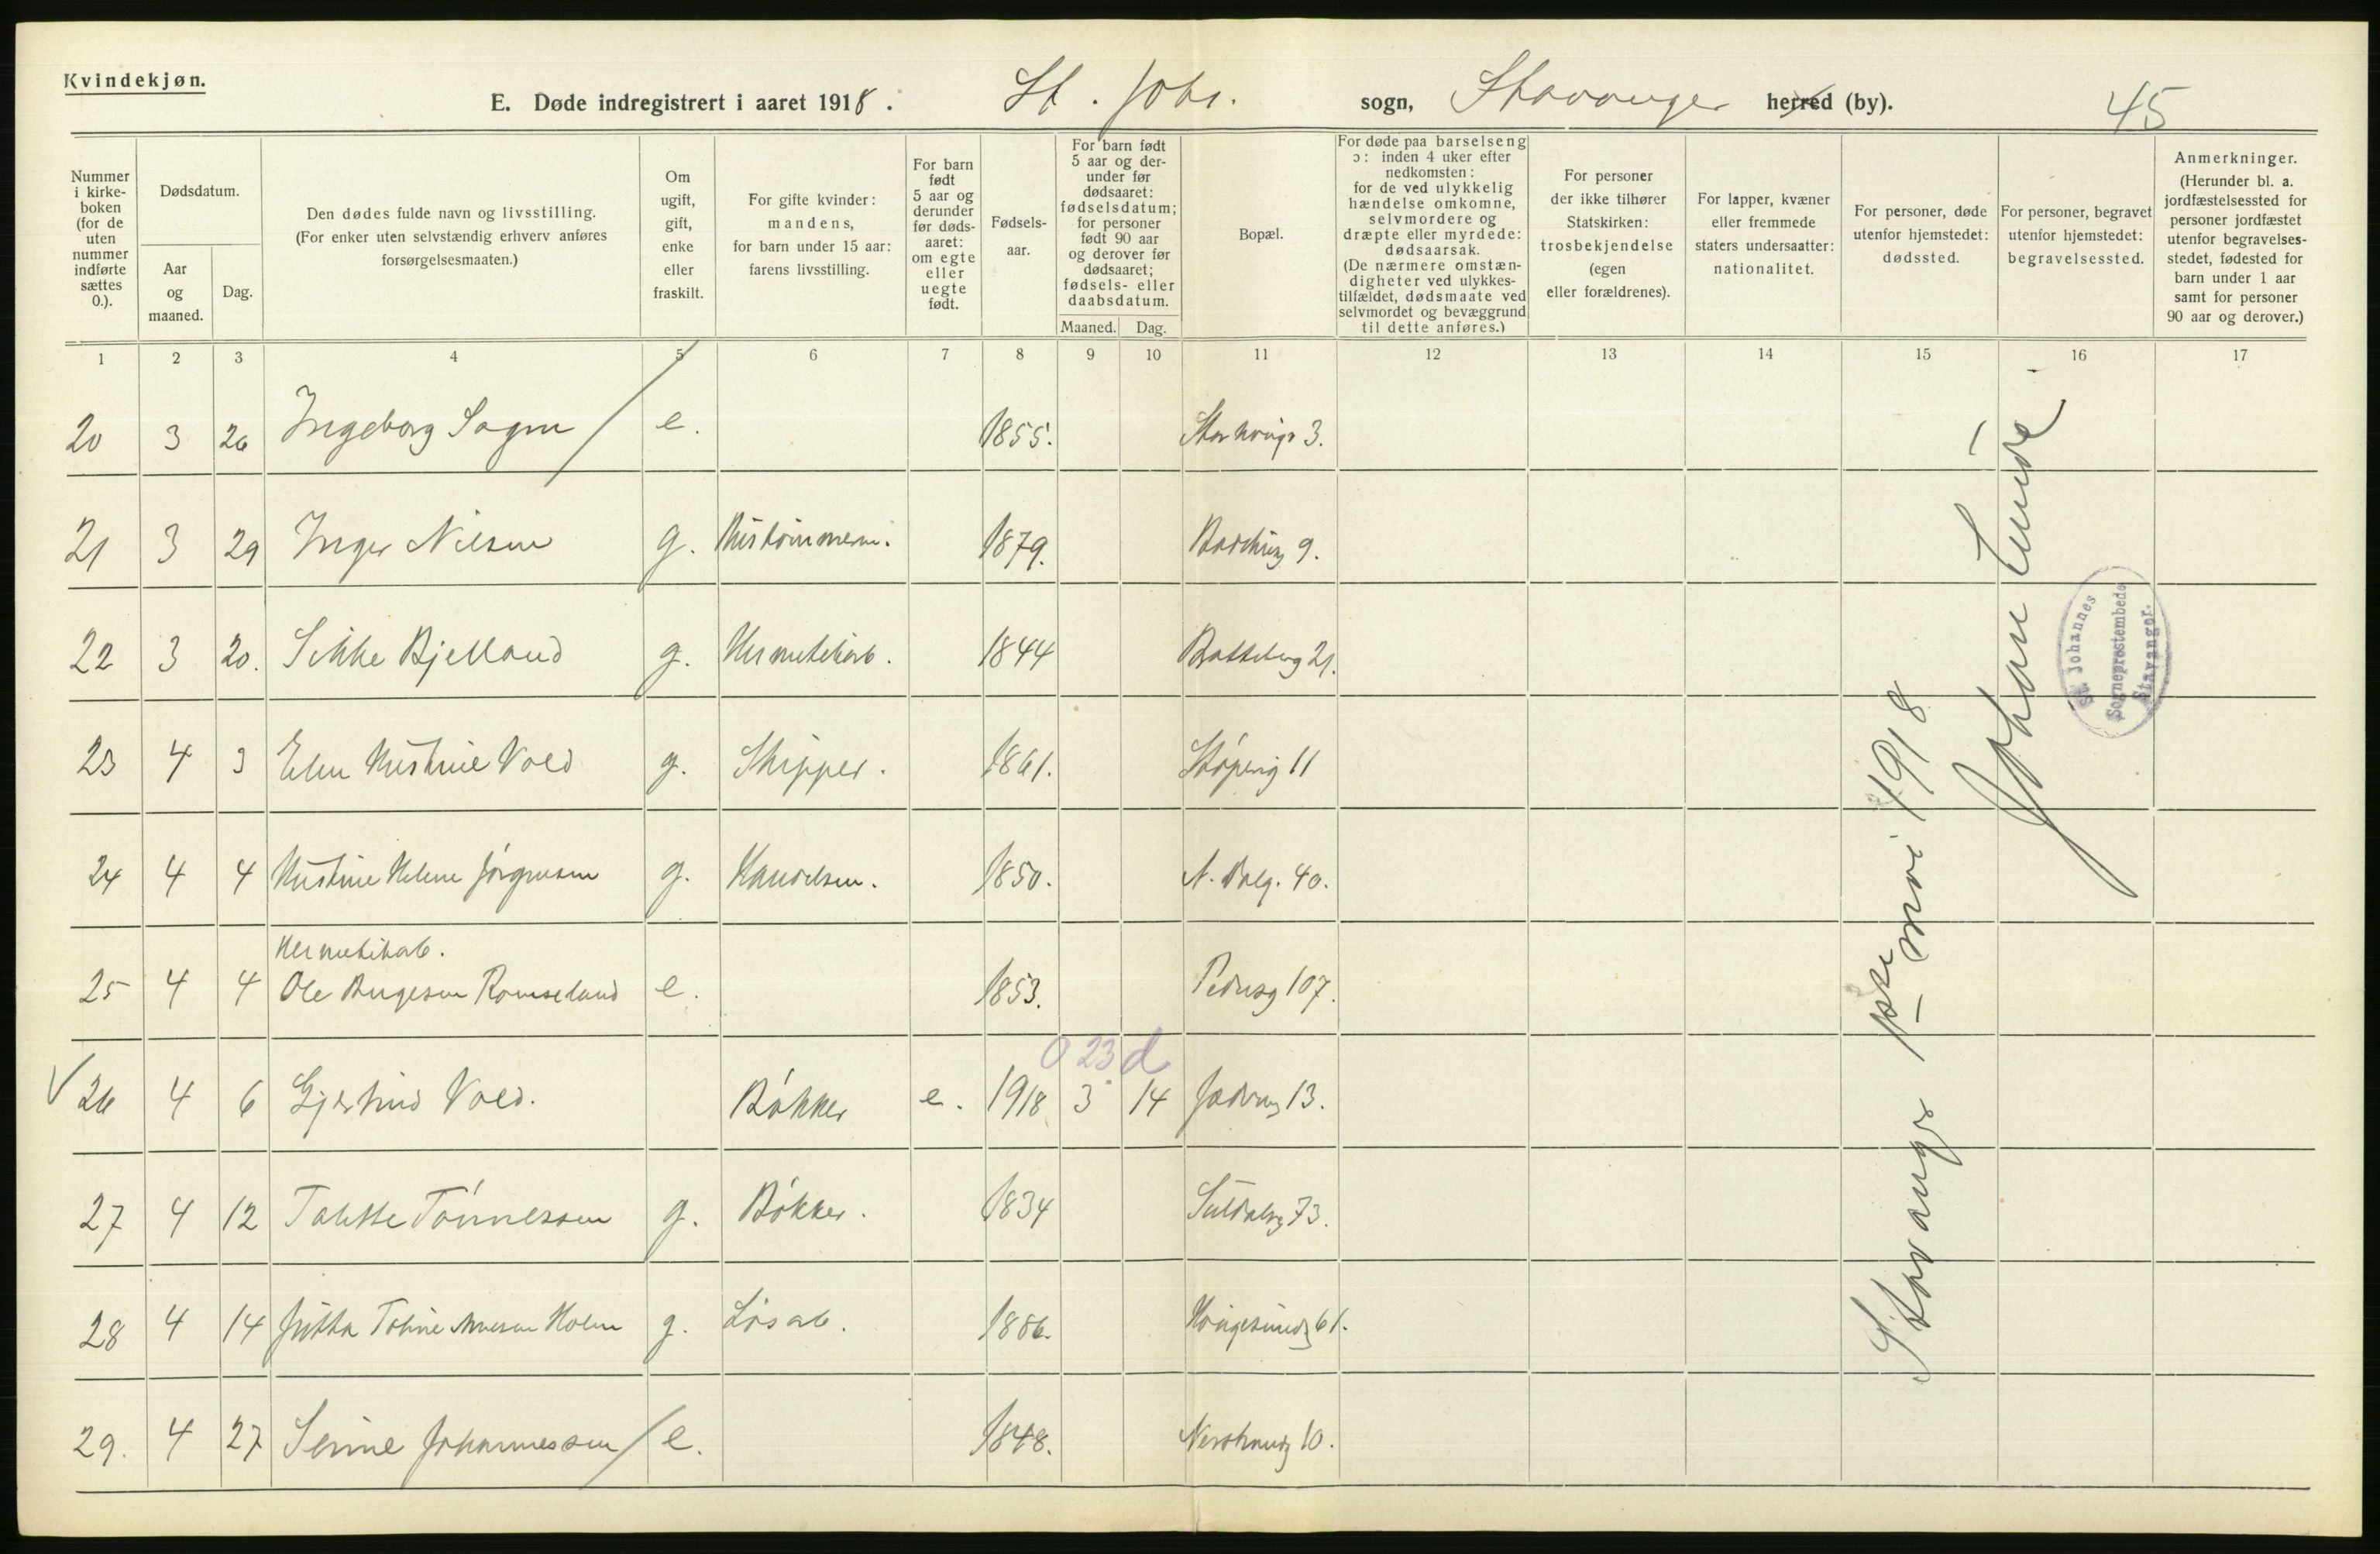 Kvindekjøn.
E. Døde indregistrert i aaret 1918. St. Johs. sogn, Stavanger herred (by). 45
Nummer i kirkeboken (for de uten nummer indførte sættes 0.).
Dødsdatum.
Aar og maaned.
Dag.
Den dødes fulde navn og livsstilling.
(For enker uten selvstændig erhverv anføres forsørgelsesmaaten.)
Om ugift, gift, enke eller fraskilt.
For gifte kvinder: mandens, for barn under 15 aar: farens livsstilling.
For barn født 5 aar og derunder før dødsaaret: om egte eller uegte født.
Fødselsaar.
For barn født 5 aar og derunder før dødsaaret: fødselsdatum; for personer født 90 aar og derover før dødsaaret; fødsels- eller daabsdatum.
Maaned. Dag.
Bopæl.
For døde paa barselseng ɔ: inden 4 uker efter nedkomsten: for de ved ulykkelig hændelse omkomne, selvmordere og dræpte eller myrdede: dødsaarsak.
(De nærmere omstændigheter ved ulykkestilfældet, dødsmaate ved selvmordet og bevæggrund til dette anføres.)
For personer der ikke tilhører Statskirken: trosbekjendelse (egen eller forældrenes).
For lapper, kvæner eller fremmede staters undersaatter: nationalitet.
For personer, døde utenfor hjemstedet: dødssted.
For personer, begravet utenfor hjemstedet: begravelsessted.
Anmerkninger.
(Herunder bl. a. jordfæstelsessted for personer jordfæstet utenfor begravelsesstedet, fødested for barn under 1 aar samt for personer 90 aar og derover.)
1 2 3 4 5 6 7 8 9 10 11 12 13 14 15 16 17
20 3 26 Ingeborg e. 1855. 3.
21 3 29 Inger Nilsen g. 1879. 9.
22 3 20. Sikke Bjelland g. Hermetikarb. 1844 21.
23 4 3 Elen Kristine Vold g. Skipper. 1861. 11
24 4 4 Kristine Helene Jörgensen g. 1850. 40.
Hermetikarb.
25 4 4 Ole Romseland e. 1853. Pedersg 107.
0 23 d
V 26 4 6 Gjertrud Vold. Bókker e. 1918 3 14 13.
27 4 12 Tónnessen g. Bókker. 1834 Suldalsg 73.
28 4 14 Holm g. Lósarb. 61.
29. 4 27 Serine Johannessen e. 1848. Nerstrandg 10.
Stavanger 1ste mai 1918
Johan Lunde.
St. Johannes
Sogneprestembede
Stavanger.